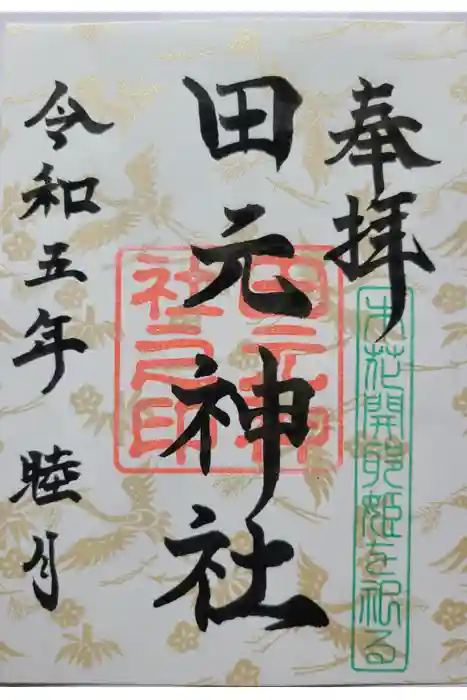 奉拝
木花開耶姫を祀る
田元神社
田元神社之印
令和五年 睦月